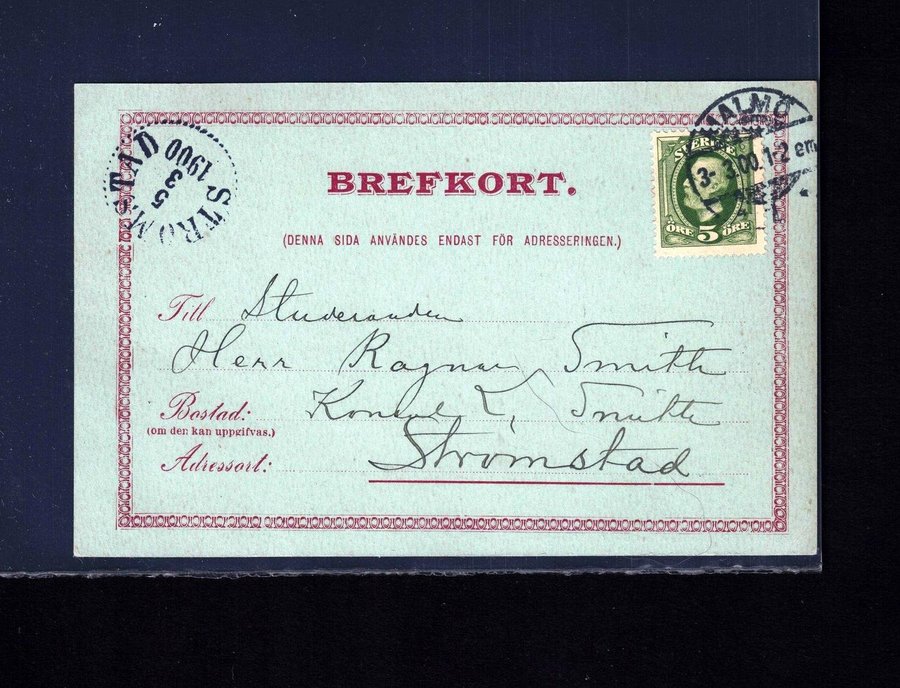 BREFKORT.
(DENNA SIDA ANVÄNDES ENDAST FÖR ADRESSERINGEN.)
STRÖMSTAD
5
3
1900
MALMÖ
3- 3.00.1-2 em
SVERIGE
ÖRE 5 ÖRE
Till Studeranden
Herr Ragnar Smith
Bostad: Konsul Smith
(om den kan uppgifvas.)
Adressort: Strømstad